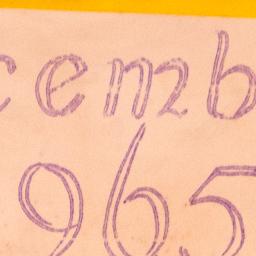 cemb
965